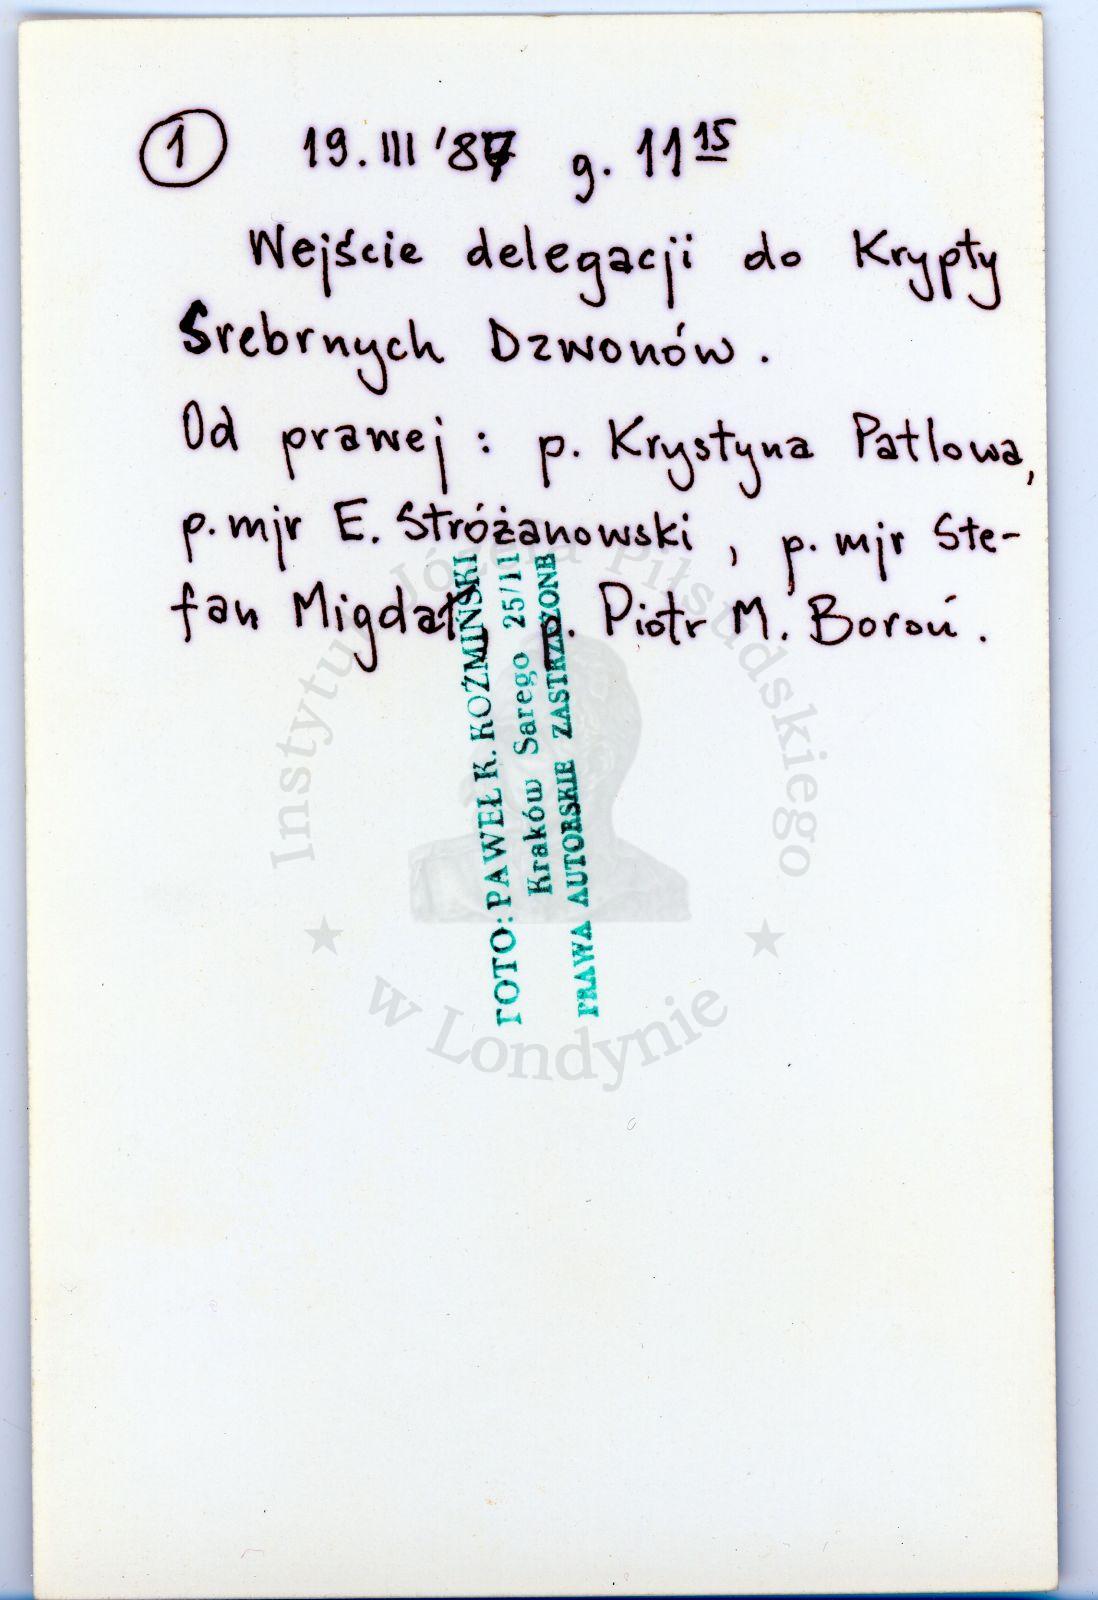 1 19.III '87 g. 11 15
Wejście delegacji do Krypty
Srebrnych Dzwonów.
Od prawej: p. Krystyna Patlowa,
p. mjr E. Stróżanowski, p. mjr Ste-
fan Migdał, p. Piotr M. Boroń.
FOTO: PAWEŁ K. KOŹMIŃSKI
Kraków Sarego 25/11
PRAWA AUTORSKIE ZASTRZEŻONE
Instytut Józefa Piłsudskiego
w Londynie